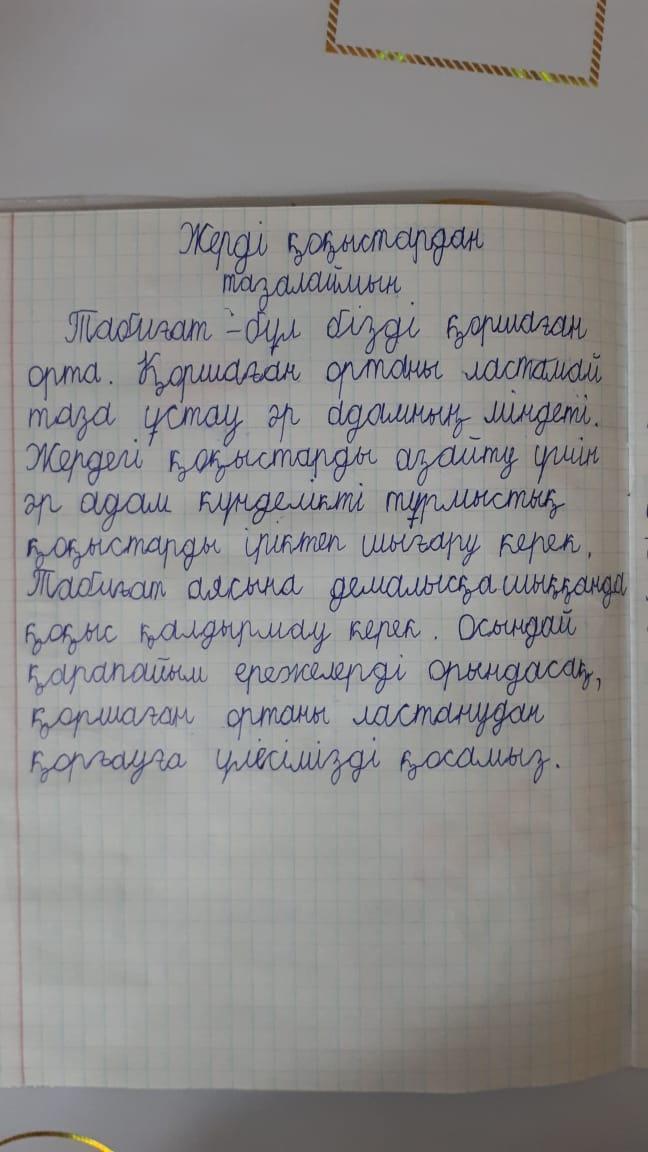 Жерді қоқыстардан
тазалаймын
Табиғат - бұл бізді қоршаған
орта. Қоршаған ортаны ластамай
таза ұстау әр адамның міндеті.
Жердегі қоқыстарды азайту үшін
әр адам күнделікті тұрмыстық
қоқыстарды іріктеп шығару керек.
Табиғат аясына демалысқа шыққанда
қоқыс қалдырмау керек. Осындай
қарапайым ережелерді орындасақ,
қоршаған ортаны ластанудан
қорғауға үлесімізді қосамыз.